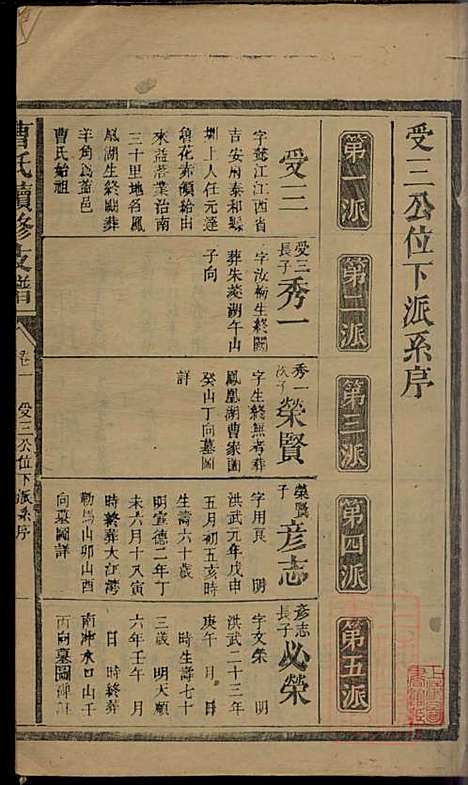 受三公位下派系序
第一派
第二派
第三派
第四派
第五派
受三
字江江西省
吉安府泰和縣
圳上人任元達
魯花赤領給由
來益落業治南
三十里地名鳳
凰湖生終闕葬
羊角為益邑
曹氏始祖
受三
長子
秀一
字汝翰生終闕
葬朱菱湖午山
子向
秀一
次子
榮賢
字生終無考葬
鳳凰湖曹家園
癸山丁向墓圖
詳
榮賢
子
彥志
字用良 明
洪武元年戊申
五月初五亥時
生壽六十歲
明宣德二年丁
未六月十八寅
時終葬大江灣
勒馬山卯山酉
向墓圖詳
彥志
長子
必榮
字文榮 明
洪武二十三年
庚午 月 日
時生壽七十
三歲 明天順
六年壬午 月
日 時終葬
南沖水口山壬
丙向墓圖詳
曹氏續修支譜 卷一 受三公位下派系序